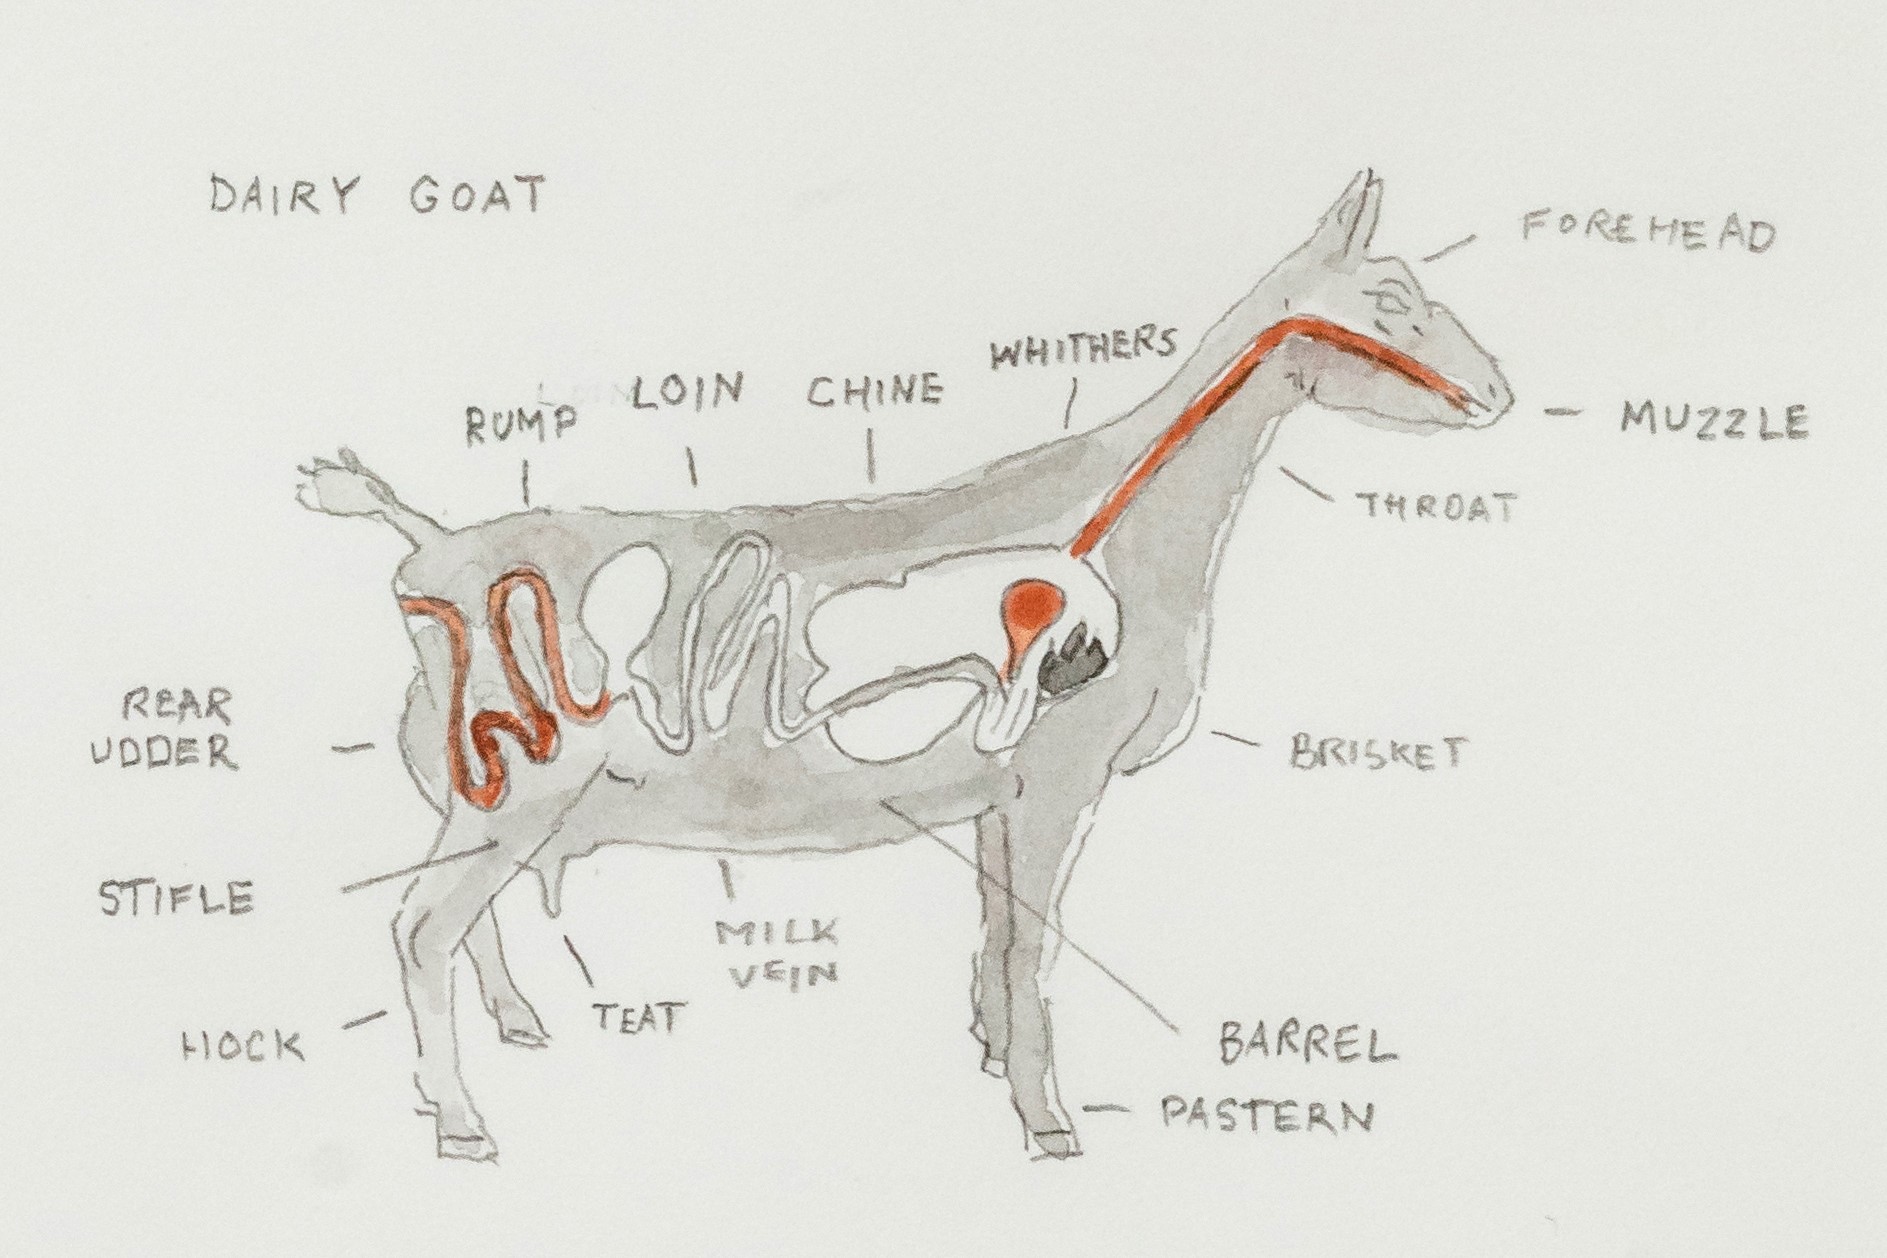 DAIRY GOAT
FOREHEAD
WHITHERS
LOIN
CHINE
RUMP
MUZZLE
THROAT
REAR
UDDER
BRISKET
STIFLE
MILK
VEIN
TEAT
HOCK
BARREL
PASTERN